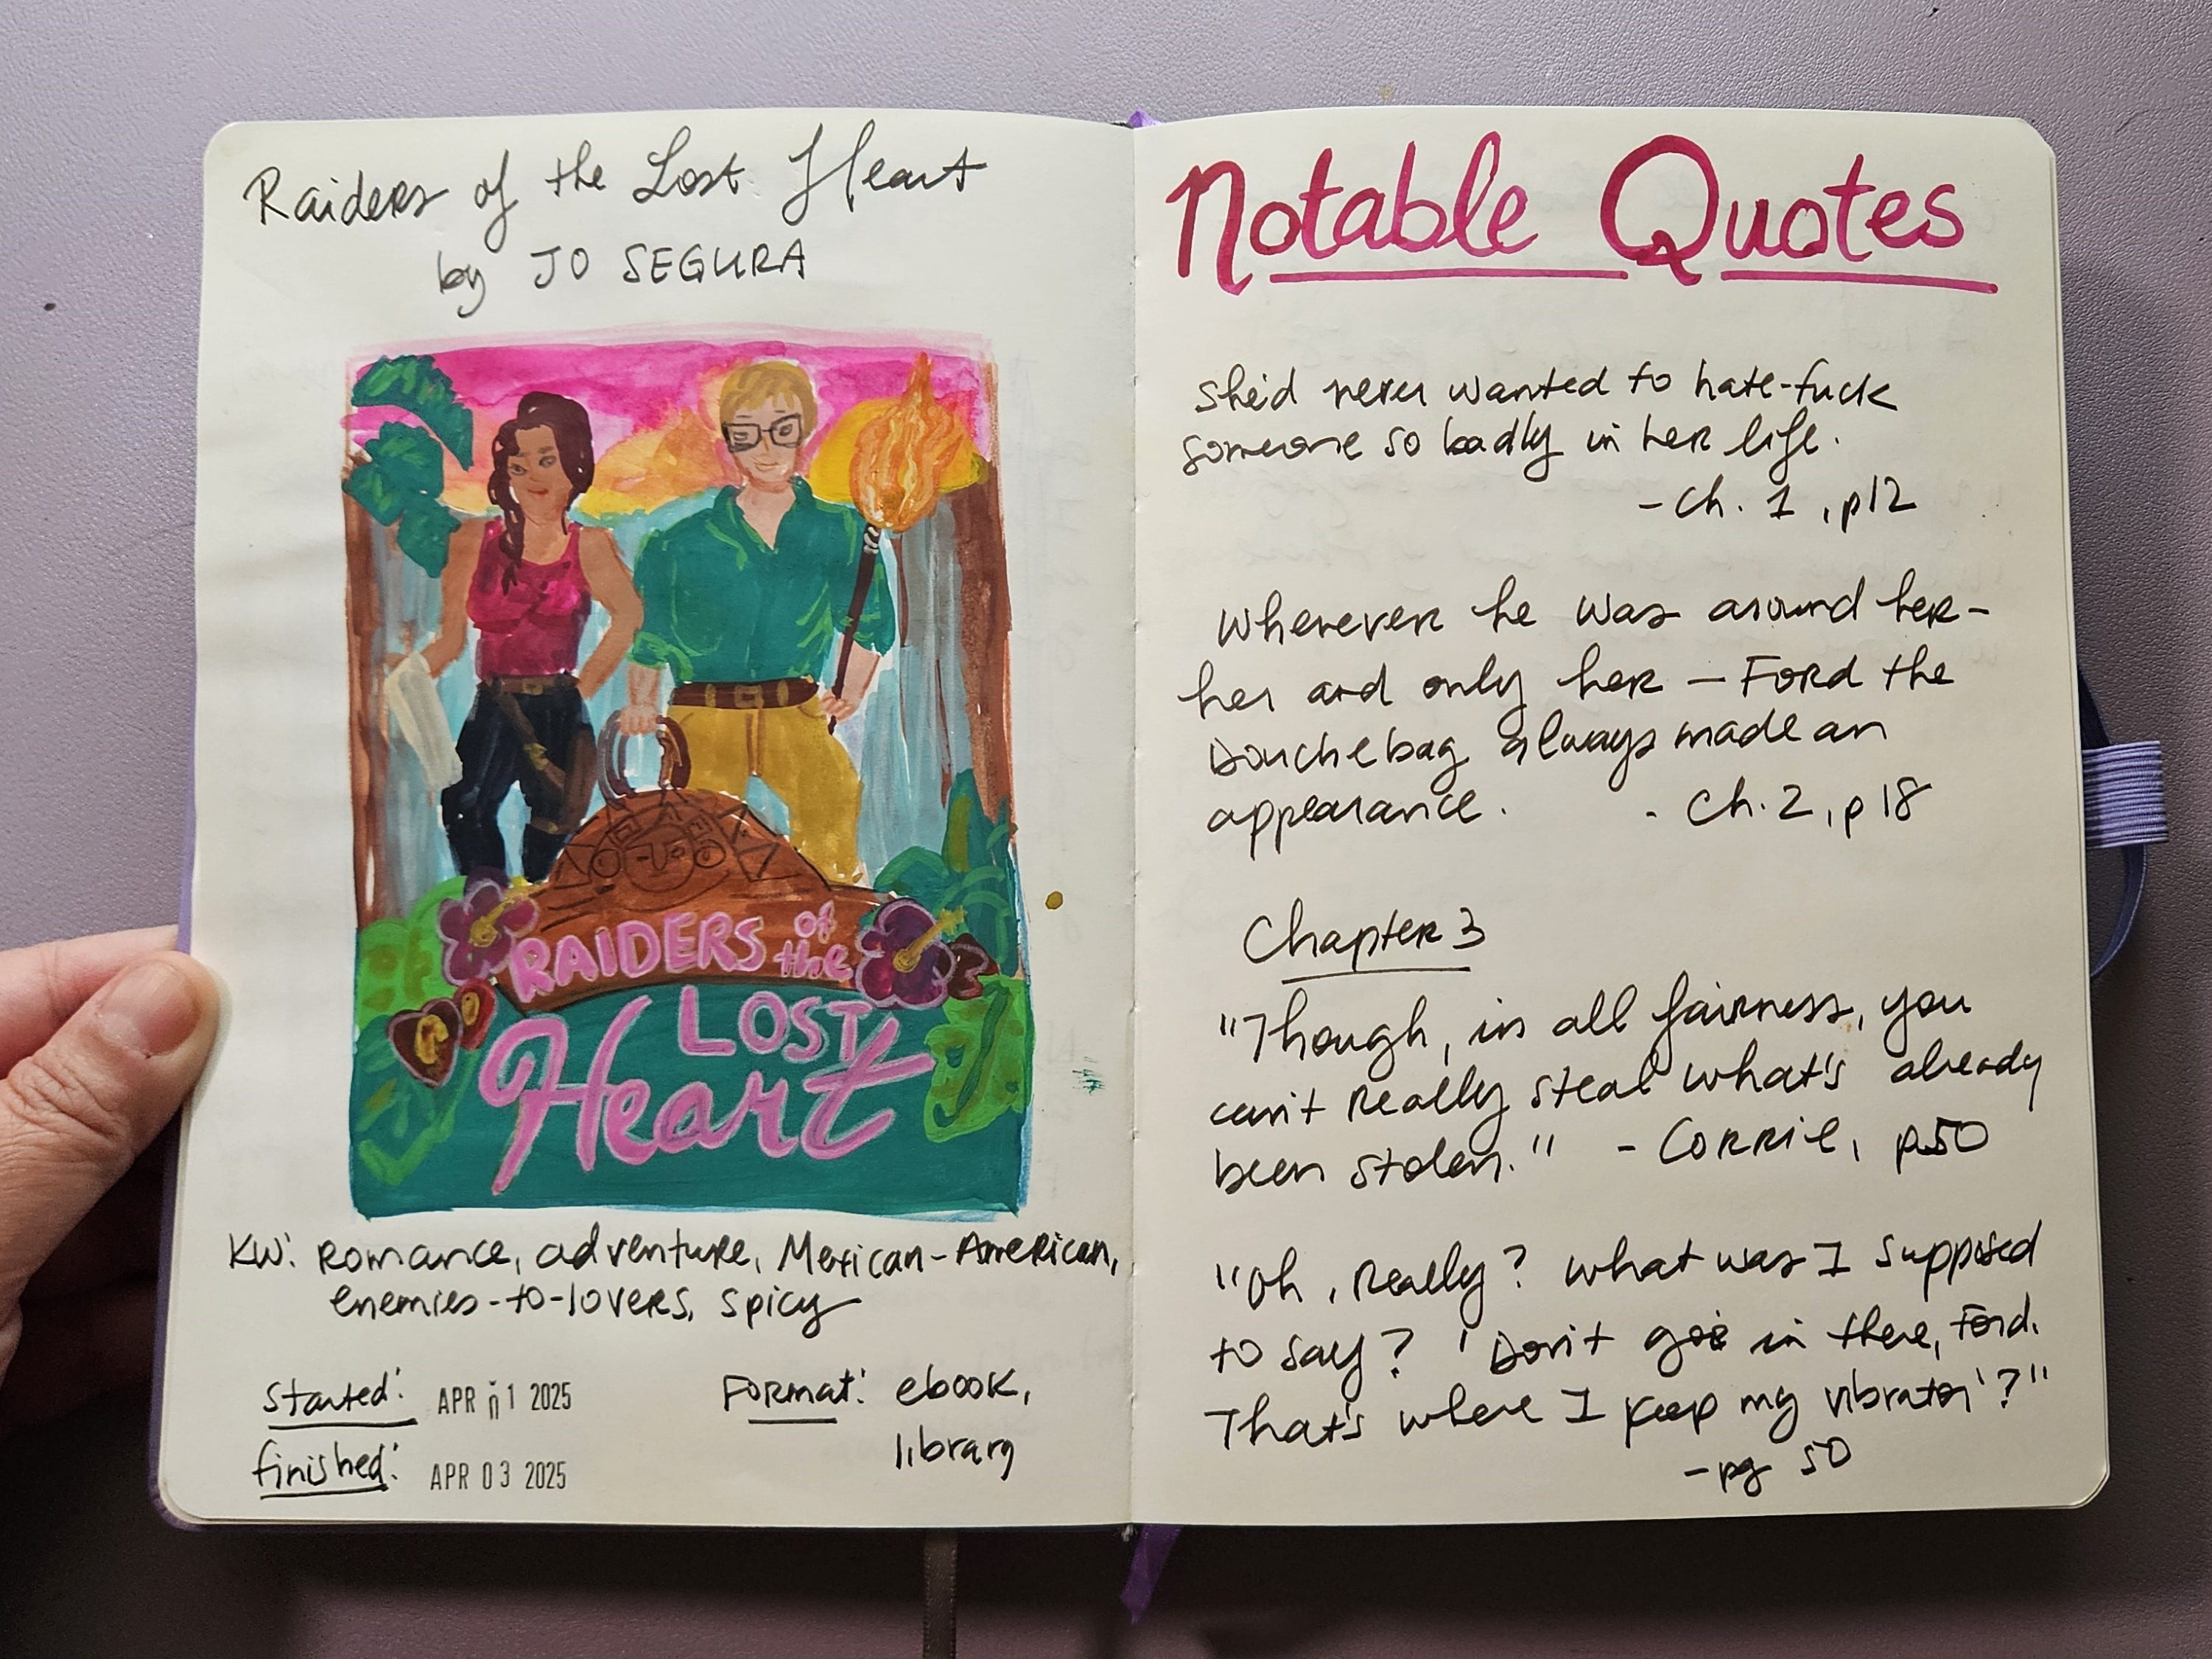 Raiders of the Lost Heart
by JO SEGURA
RAIDERS of the
LOST
Heart
KW: Romance, adventure, Mexican-American,
enemies-to-lovers, spicy
Started: APR 01 2025
finished: APR 03 2025
Format: ebook,
library
Notable Quotes
she'd never wanted to hate-fuck
someone so badly in her life.
-Ch. 1, p12
Wherever he was around her-
her and only her - Ford the
Douchebag always made an
appearance. - Ch. 2, p18
Chapter 3
"Though, in all fairness, you
can't really steal what's already
been stolen." - Corrie, p50
"Oh, really? What was I supposed
to say? 'Don't go in there, Ford.
That's where I keep my vibrator'?"
-pg 50